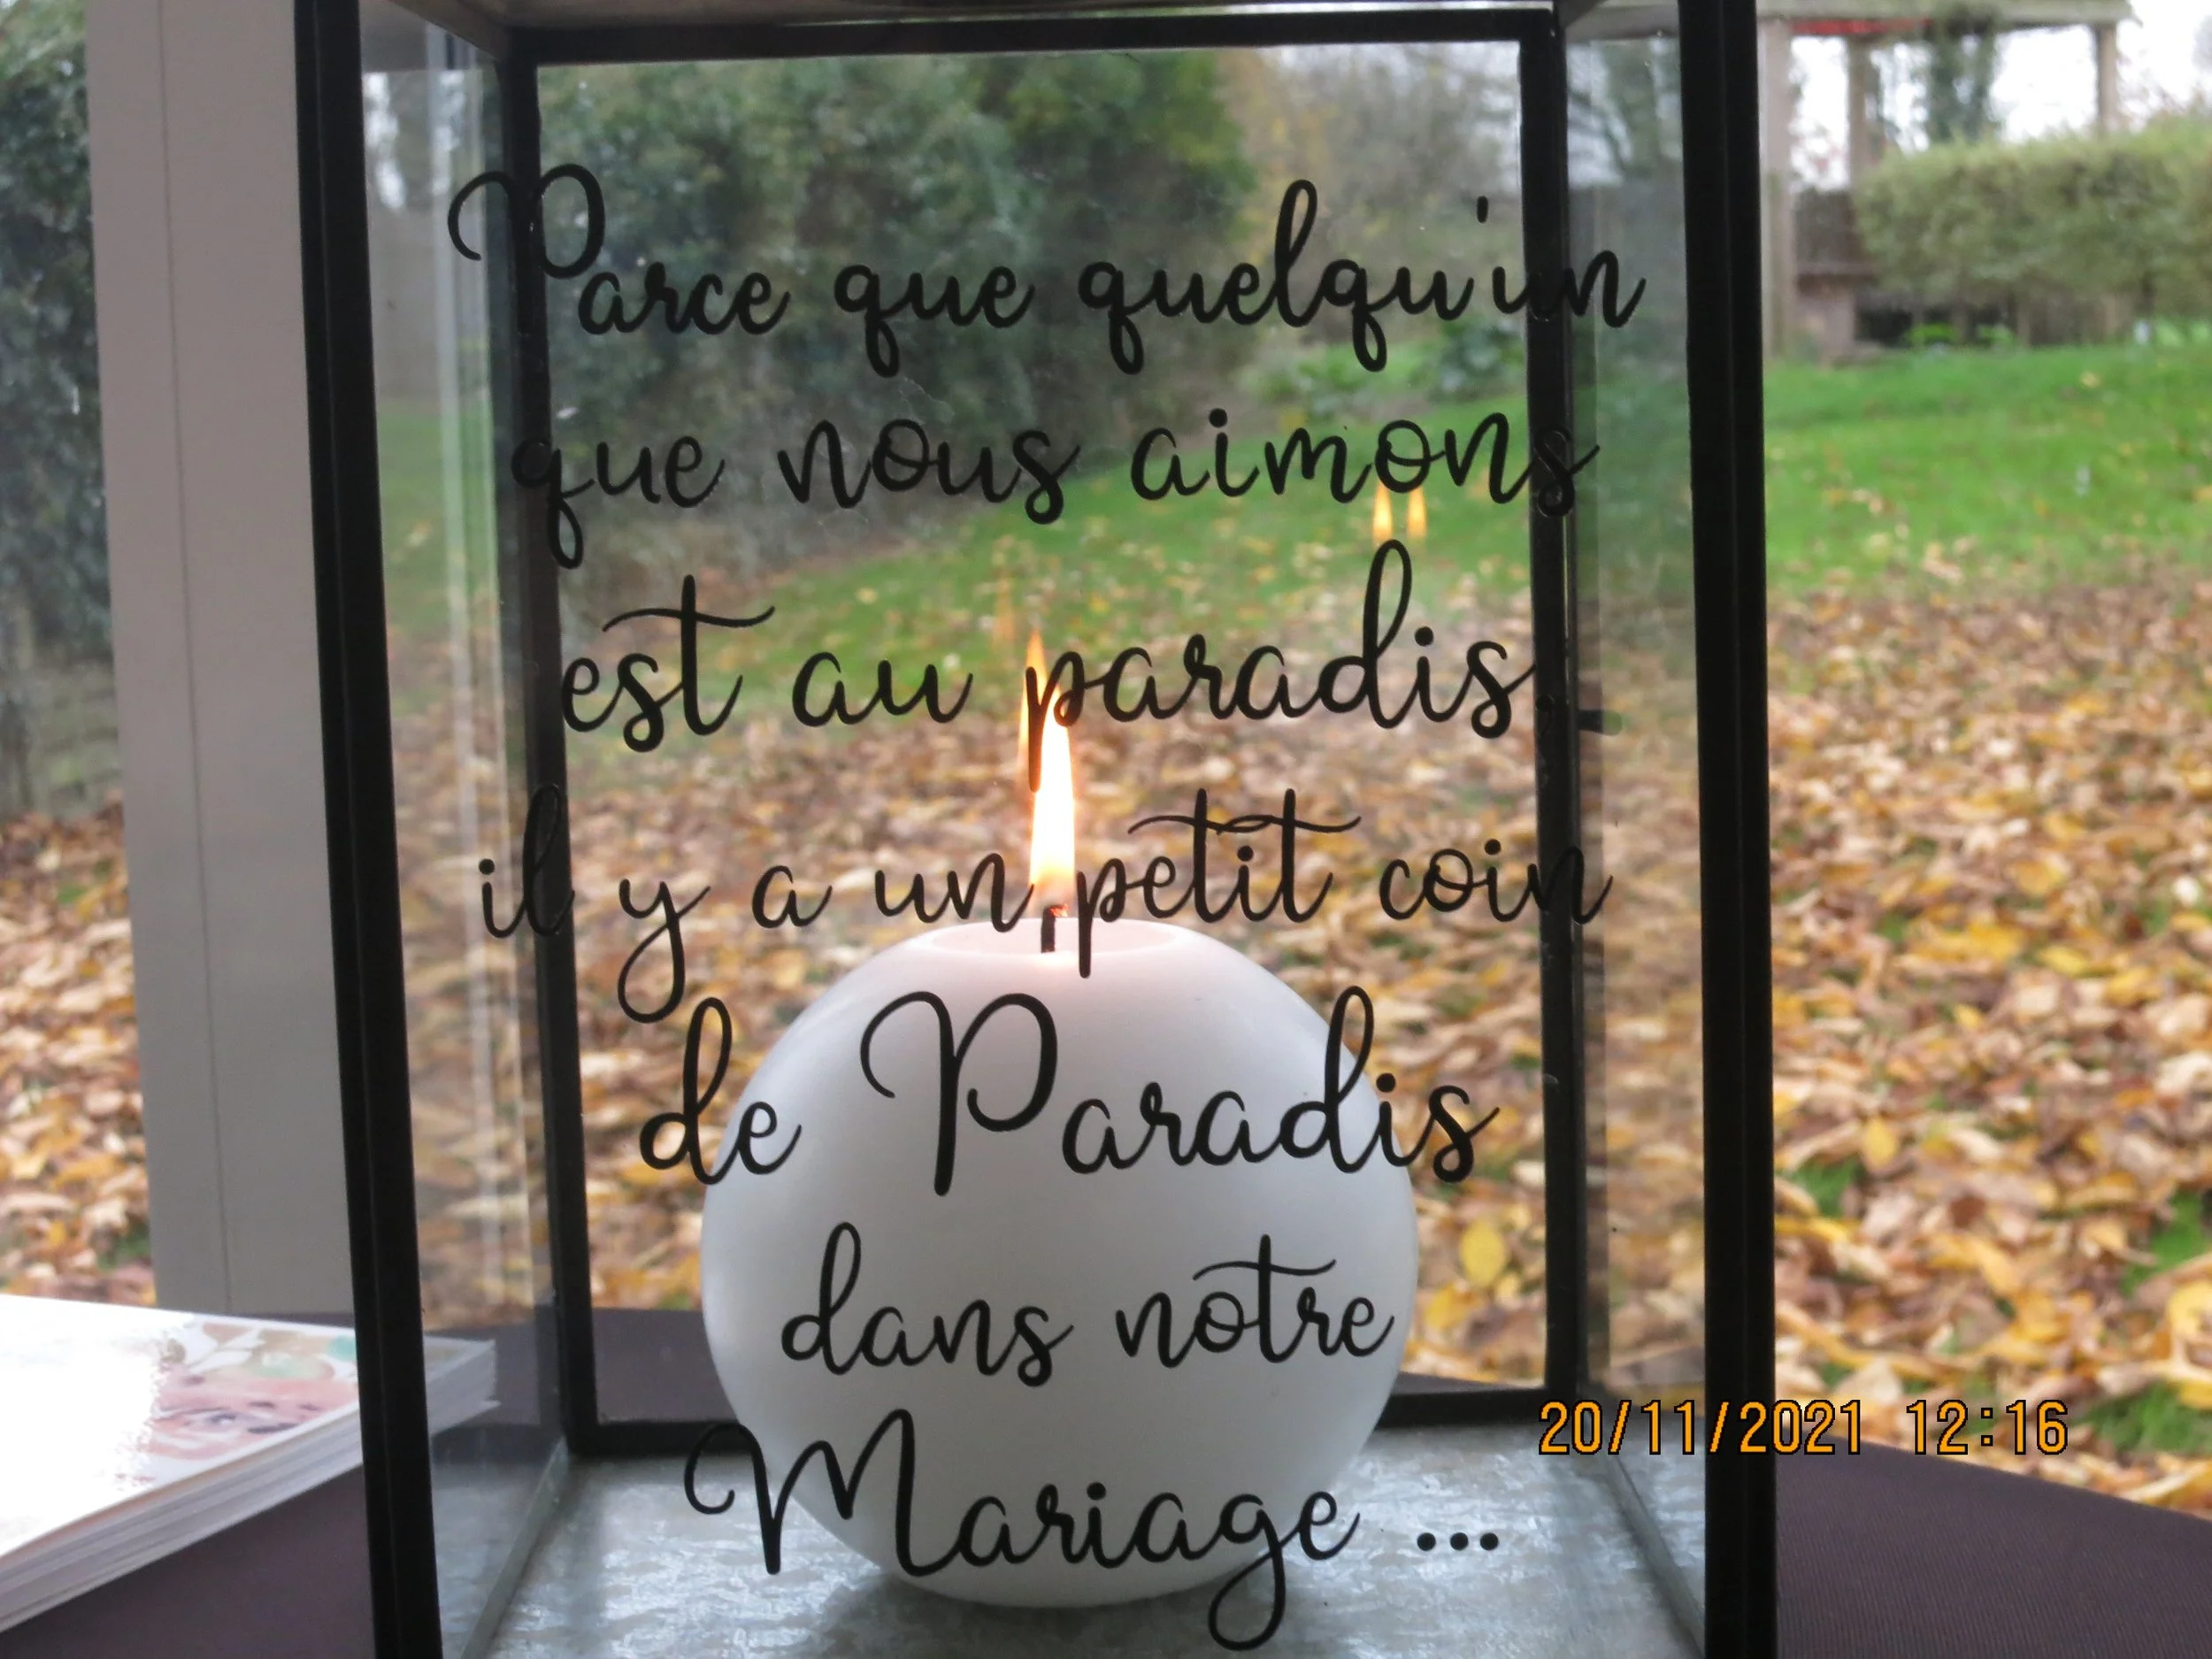 Parce que quelqu'un
que nous aimons
est au paradis,
il y a un petit coin
de Paradis
dans notre
Mariage ...
20/11/2021 12:16